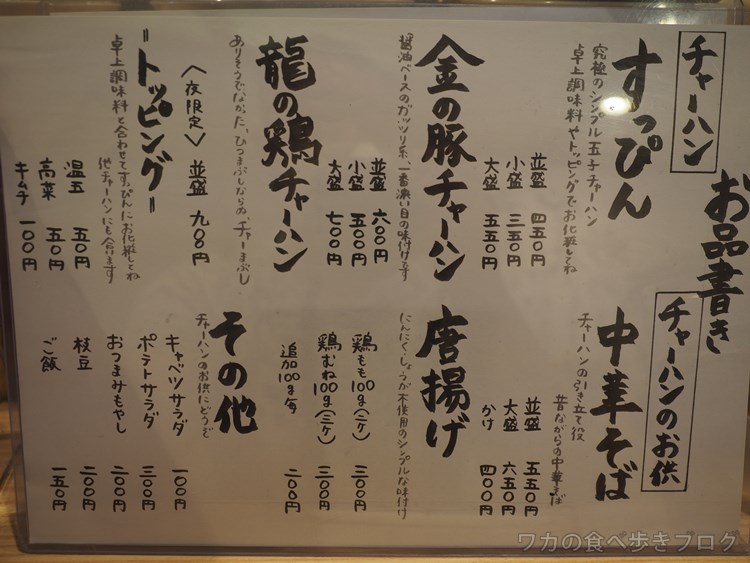 お品書き
チャーハン
すっぴん
究極のシンプル玉子チャーハン
卓上調味料やトッピングでお化粧してね
並盛 四五〇円
小盛 三五〇円
大盛 五五〇円
金の豚チャーハン
醤油ベースのガッツリ系、一番濃い目の味付けです
並盛 六〇〇円
小盛 五〇〇円
大盛 七〇〇円
龍の鶏チャーハン
ありそうでなかった、ひつまぶしならぬ、チャーまぶし
〈夜限定〉 並盛 九〇〇円
＝トッピング＝
卓上調味料と合わせてすっぴんにお化粧してね
他チャーハンにも合います
温玉 五〇円
高菜 五〇円
キムチ 一〇〇円
チャーハンのお供
中華そば
チャーハンの引き立て役
昔ながらの中華そば
並盛 五五〇円
大盛 六五〇円
かけ 四〇〇円
唐揚げ
にんにく、しょうが不使用のシンプルな味付け
鶏もも100g(二ケ) 三〇〇円
鶏むね100g(三ケ) 三〇〇円
追加100g毎 二〇〇円
その他
チャーハンのお供にどうぞ
キャベツサラダ 一〇〇円
ポテトサラダ 三〇〇円
おつまみもやし 二〇〇円
枝豆 二〇〇円
ご飯 一五〇円
ワカの食べ歩きブログ